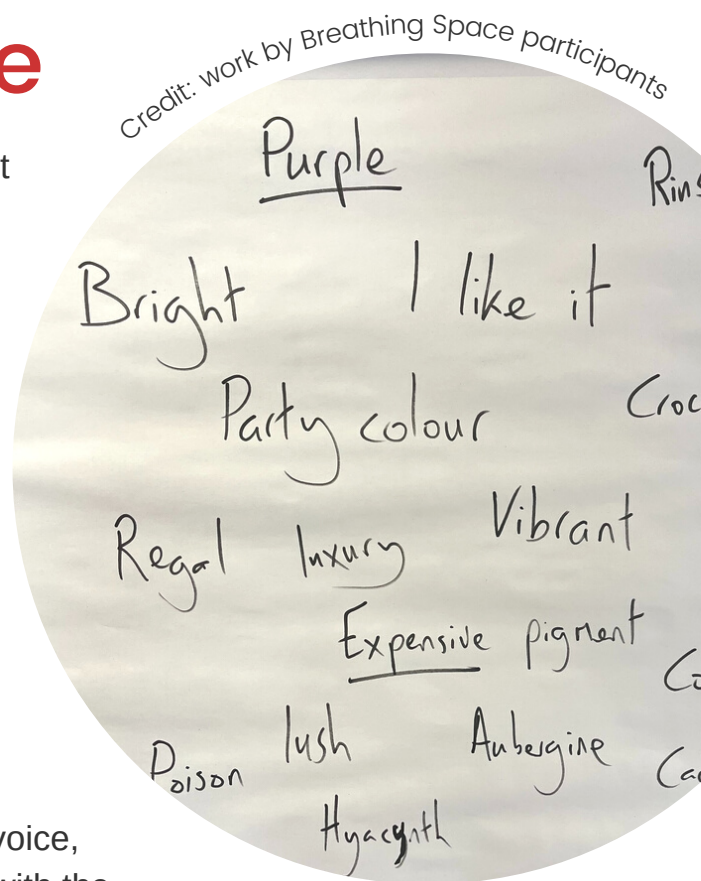 e
Credit: work by Breathing Space participants
t
Purple
Rins
Bright I like it
Party colour
Croc
Regal luxury Vibrant
Expensive pigment
lush Aubergine
Poison
Ca
Hyacynth
voice,
with the